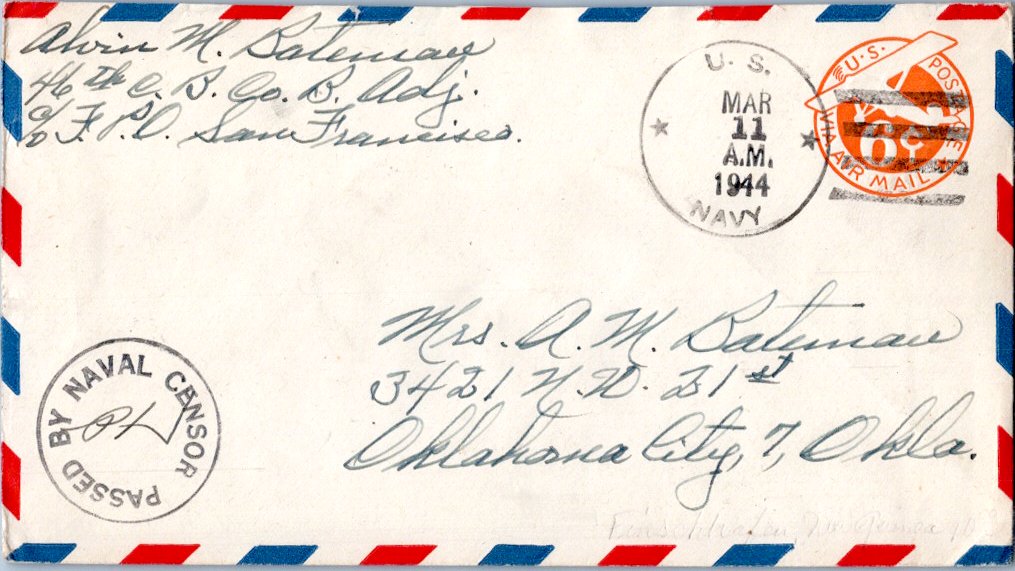 Alvin M. Bateman
46th C. B. Co. B. Adj.
c/o F. P. O. San Francisco.
U. S.
MAR
11
A.M.
1944
NAVY
U.S. POSTAGE
6¢
VIA AIR MAIL
Mrs. A. M. Bateman
3421 N.W. 21st
Oklahoma City, 7, Okla.
PASSED BY NAVAL CENSOR
Finschhafen, New Guinea